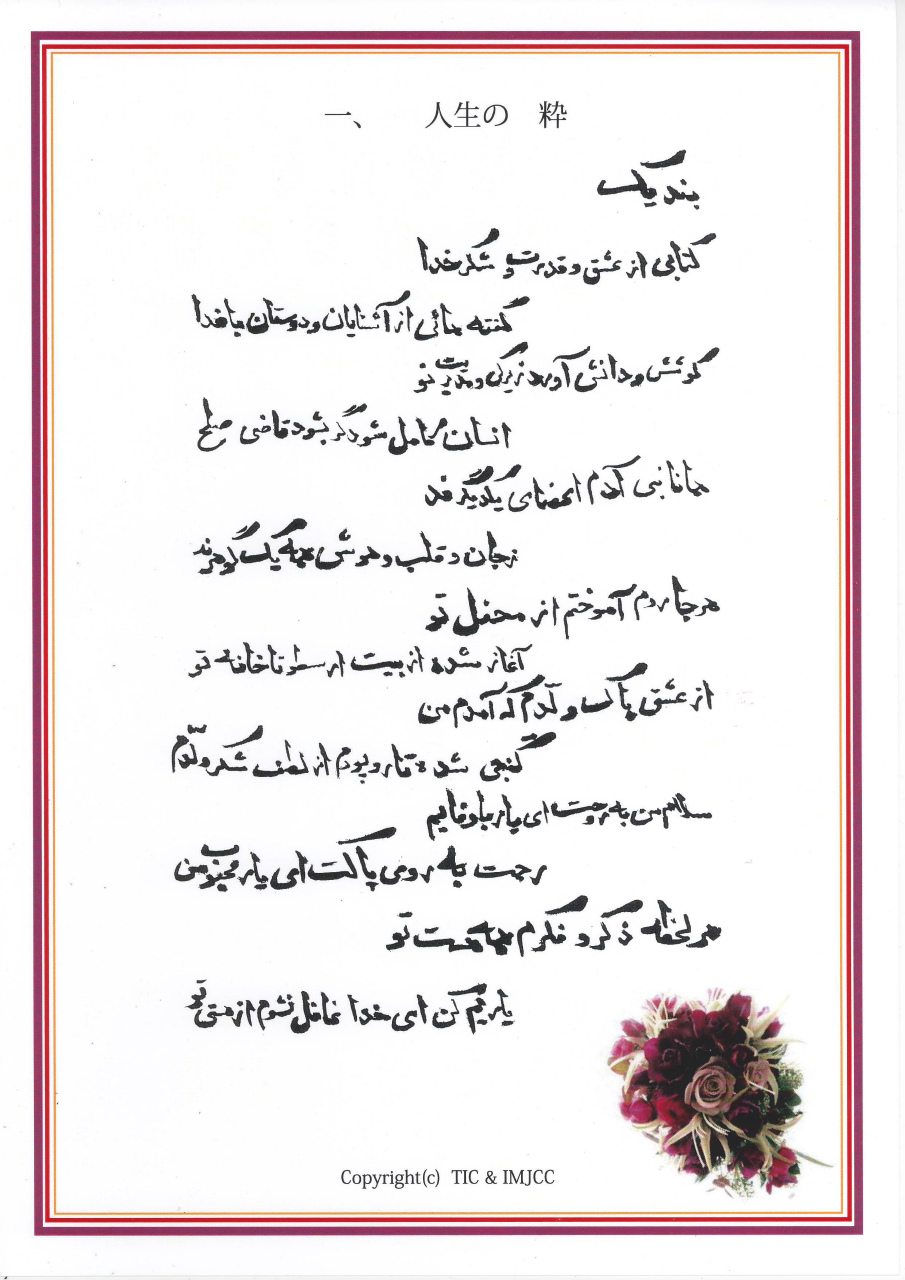 一、 人生の 粋
بند یک
کتابی از عشق و قدرت و شکر خدا
گفته هائی از آشنایان و دوستان با خدا
کوشش و دانش آورد زیرکی و مدیریت تو
انسان کامل شود گر بشود قاضی صلح
همانا بنی آدم اعضای یکدیگرند
زجان و قلب و هوش همه یک گوهرند
هر جا روم آموختم از محفل تو
آغاز شده از بیت ارسطو تا خانه تو
از عشق پاک و لّدم که آمدم من
گنجی شده تار و پودم از لطف شکر و لّدم
سلام من به روحت ای یار باوفایم
رحمت به روی پاکت ای یار محبوب من
هر لحظه ذکر و فکرم همه هست تو
یاریم کن ای خدا غافل نشوم از هستی تو
Copyright(c) TIC & IMJCC